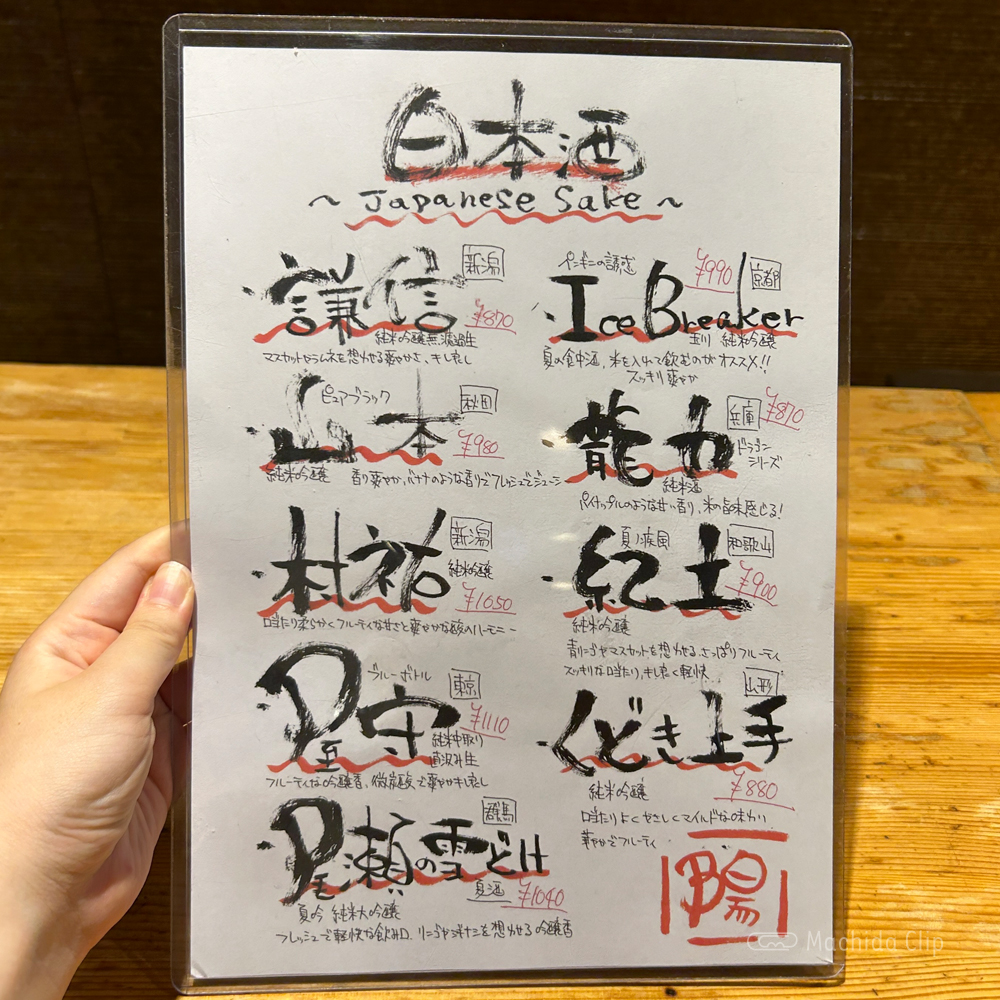 日本酒
~ Japanese Sake ~
謙信 新潟
¥870
純米吟醸無濾過生
マスカットやラムネを想わせる爽やかさ、キレ良し
山本 ピュアブラック 秋田
¥980
純米吟醸 香り爽やか、バナナのような香りでフレッシュでジューシー
村祐 新潟
純米吟醸
¥1050
口当たり柔らかくフルーティな甘さと爽やかな酸のハーモニー
屋守 ブルーボトル 東京
¥1110
純米中取り
直汲み生
フルーティな吟醸香、微炭酸で爽やかキレ良し
尾瀬の雪どけ 群馬
夏酒 ¥1040
夏吟 純米大吟醸
フレッシュで軽快な飲み口、リンゴや洋ナシを想わせる吟醸香
ペンギンの誘惑 ¥990 京都
Ice Breaker
玉川 純米吟醸
夏の食中酒、氷を入れて飲むのがオススメ!!
スッキリ爽やか
龍力 兵庫 ¥870
ドラゴン
シリーズ
純米酒
パイナップルのような甘い香り、米の旨味感じる!
紀土 夏ノ疾風 和歌山
¥900
純米吟醸
青リンゴやマスカットを想わせる、さっぱりフルーティ
スッキリな口当たり、キレ良く軽快
くどき上手 山形
¥880
純米吟醸
口当たりよくやさしくマイルドな味わい
華やかでフルーティ
Machida Clip